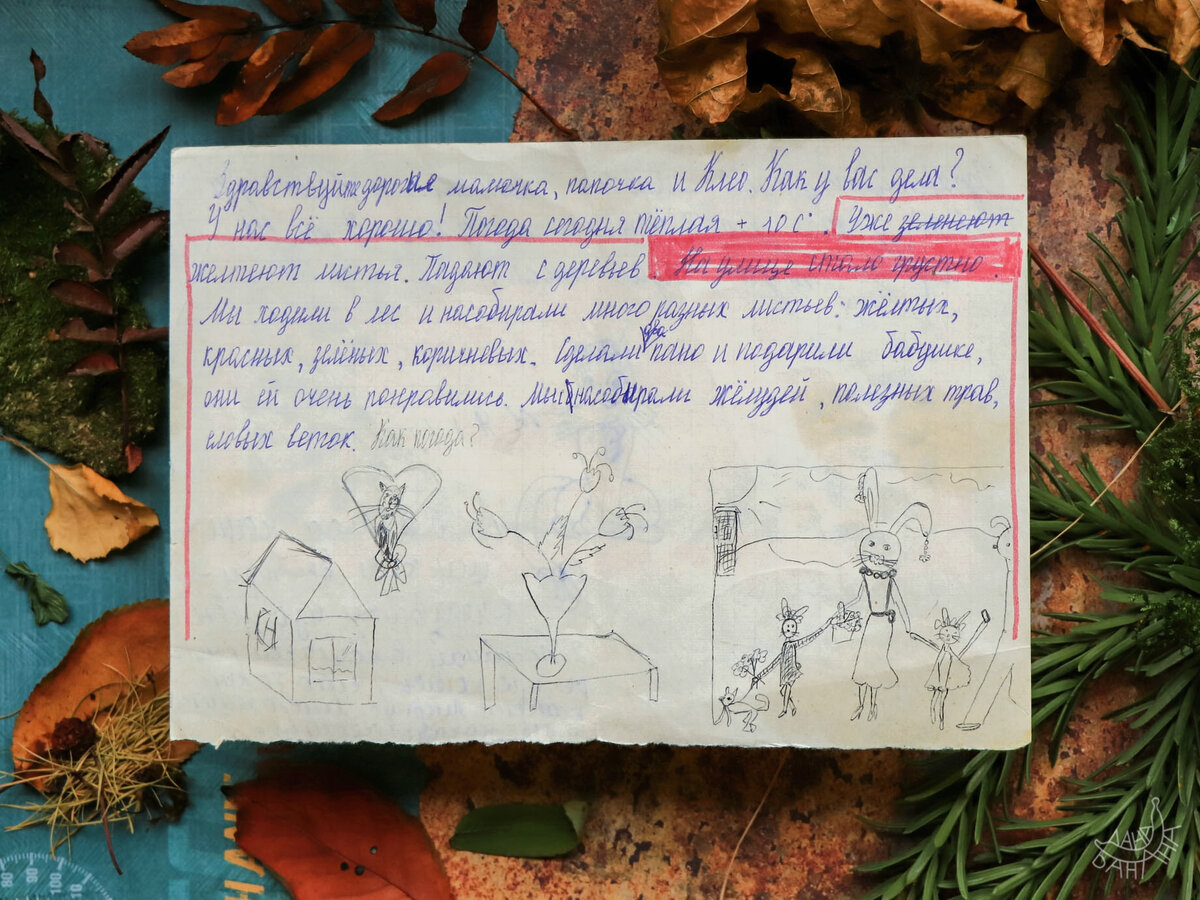 Здравствуйте дорогие мамочка, папочка и Клео. Как у вас дела?
У нас всё хорошо! Погода сегодня тёплая + 10 с°. Уже зеленеют
желтеют листья. Падают с деревьев. На улице стало грустно.
Мы ходили в лес и насобирали много разных листьев: жёлтых,
красных, зелёных, коричневых. Сделали два пано и подарили бабушке,
они ей очень понравились. Мы насобирали жёлудей, полезных трав,
еловых веток. Как погода?
80 90 100 110